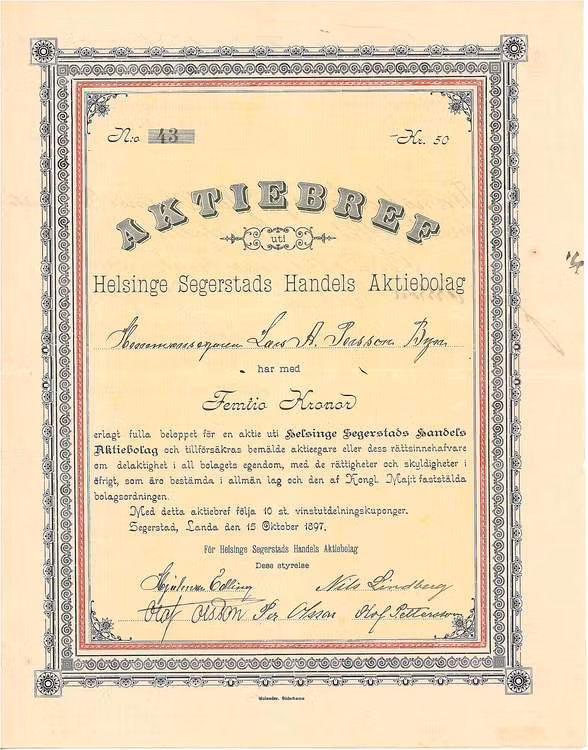 N:o 43 Kr. 50
AKTIEBREF
uti
Helsinge Segerstads Handels Aktiebolag
Hemmansegaren Lars A. Persson Byn
har med
Femtio Kronor
erlagt fulla beloppet för en aktie uti Helsinge Segerstads Handels
Aktiebolag och tillförsäkras bemälde aktieegare eller dess rättsinnehafvare
om delaktighet i all bolagets egendom, med de rättigheter och skyldigheter i
öfrigt, som äro bestämda i allmän lag och den af Kongl. Maj:t fastställda
bolagsordningen.
Med detta aktiebref följa 10 st. vinstutdelningskuponger.
Segerstad, Landa den 15 Oktober 1897.
För Helsinge Segerstads Handels Aktiebolag
Dess styrelse
Hjalmar Edling Nils Lindberg
Olof Olsson Per Olsson Olof Pettersson